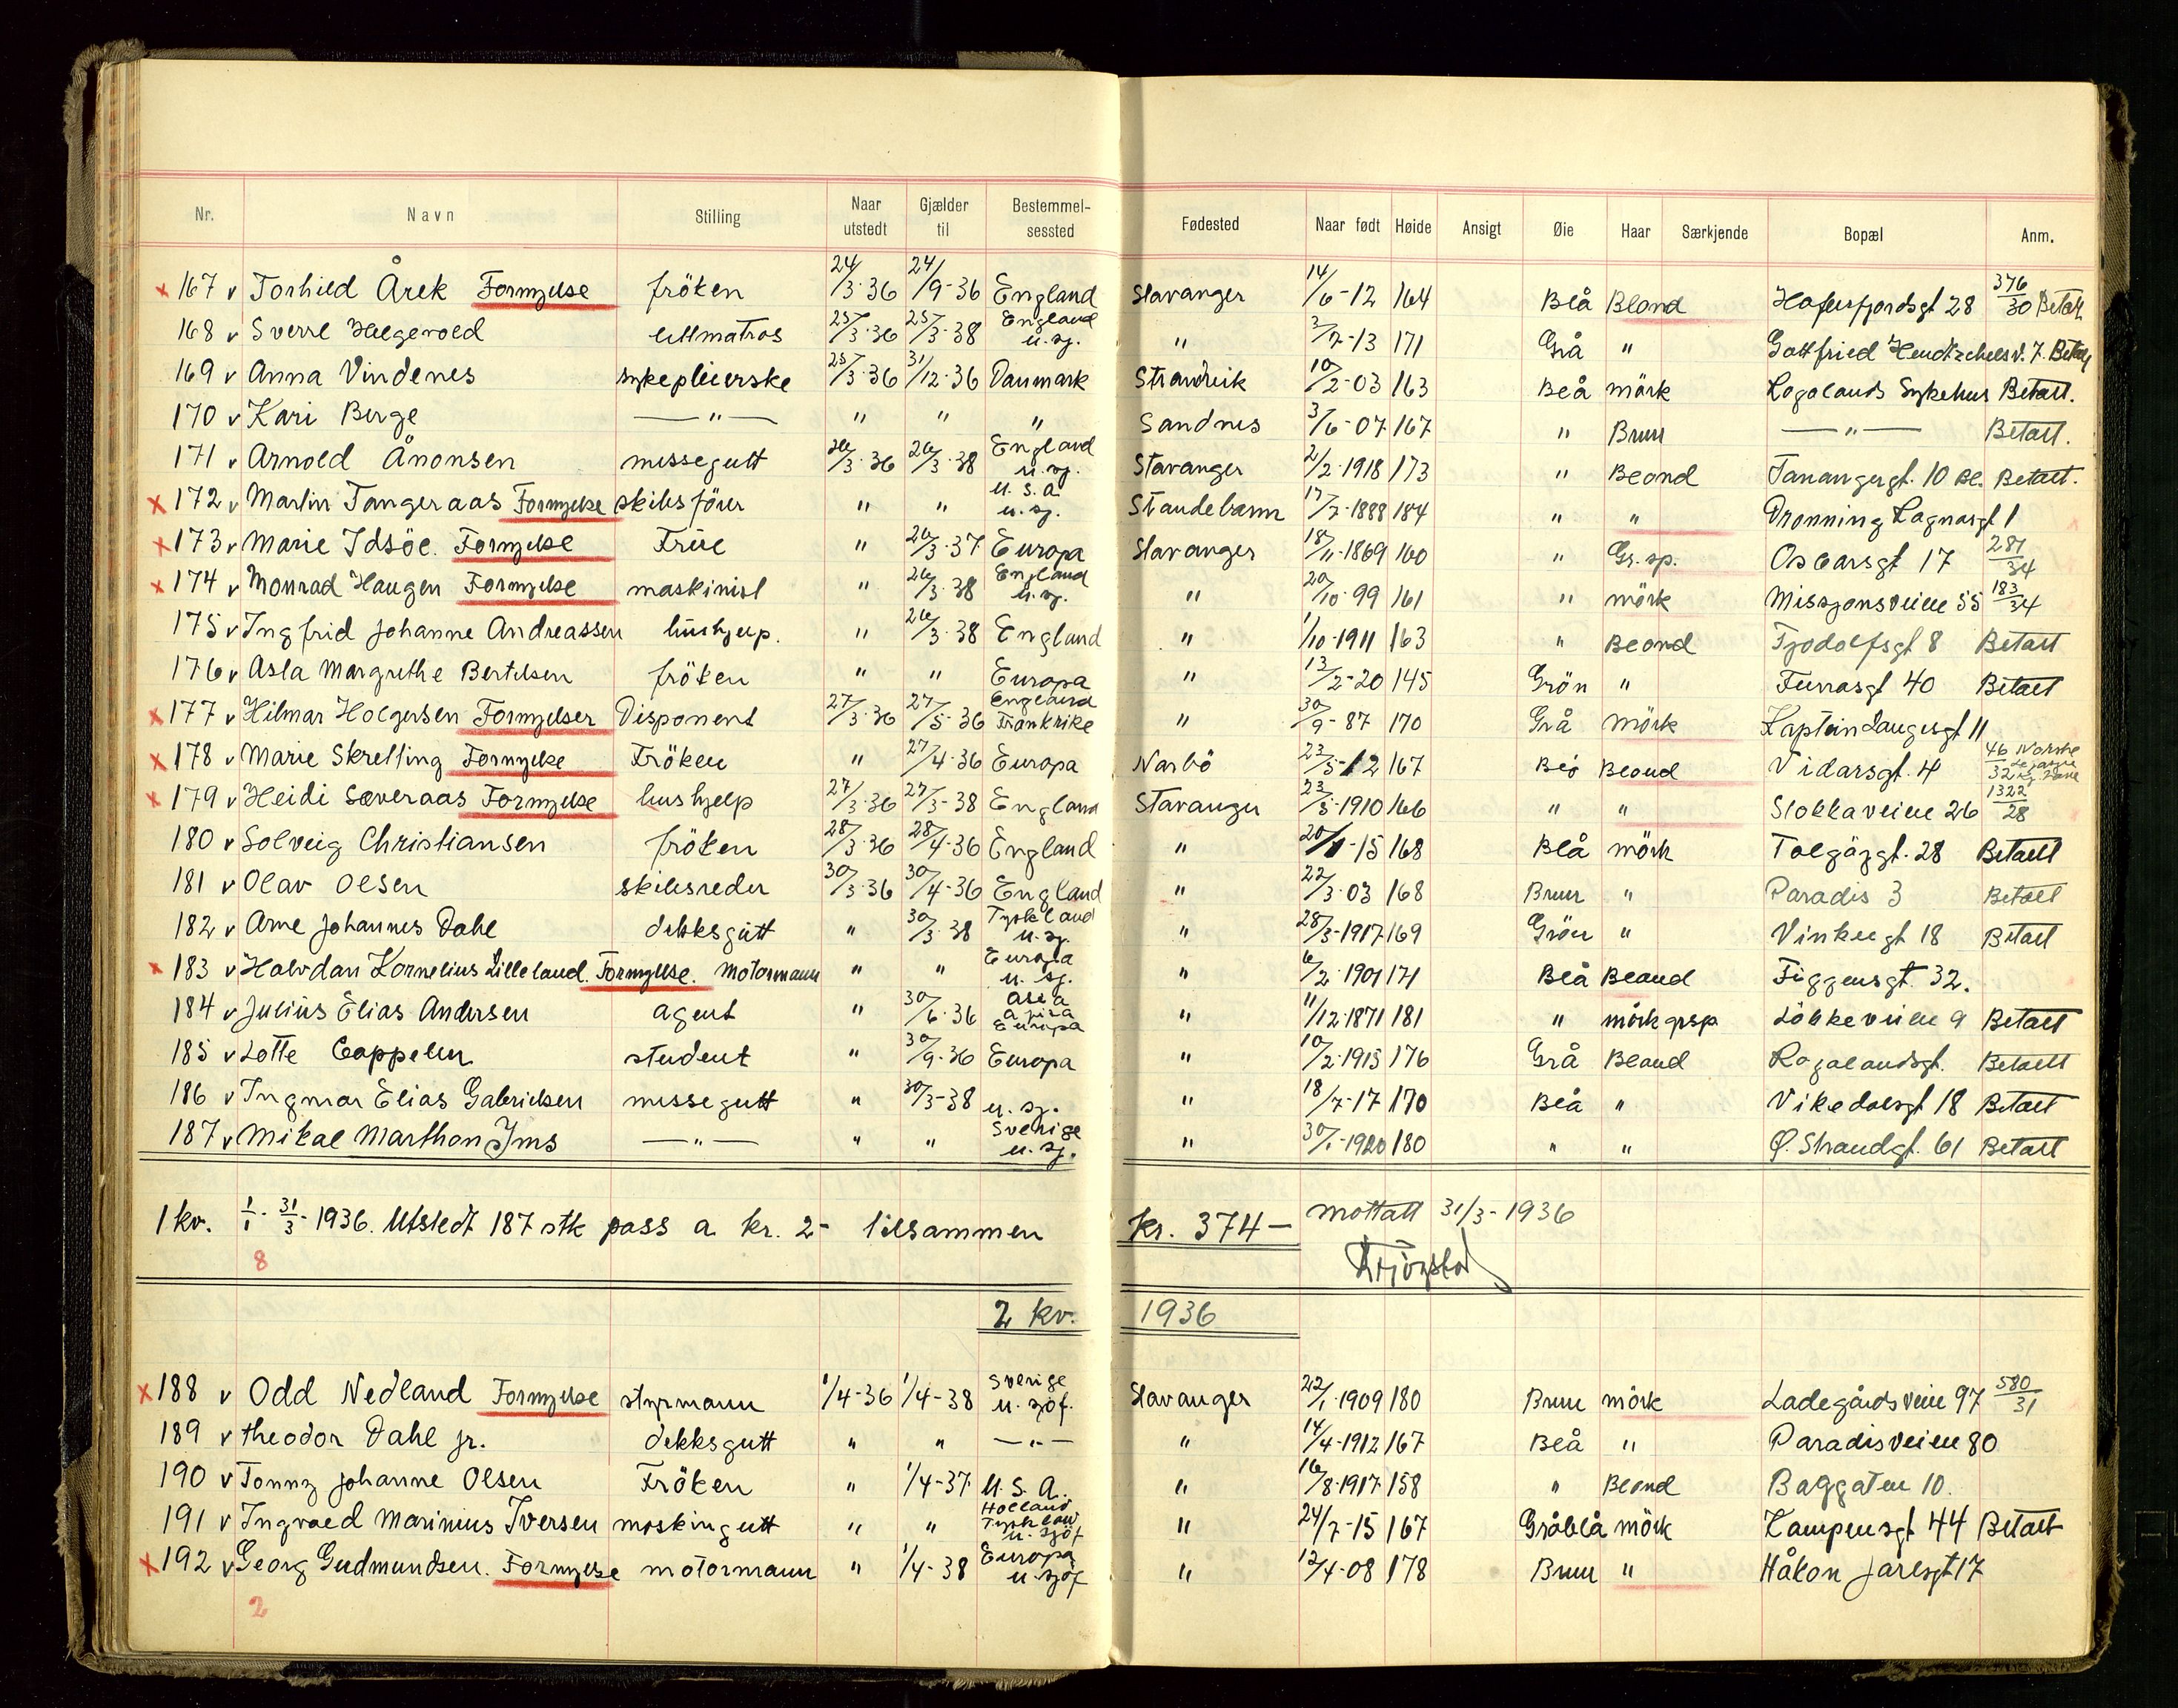 Nr. Navn Stilling Naar utstedt Gjælder til Bestemmel-sessted Fødested Naar født Høide Ansigt Øie Haar Særkjende Bopæl Anm.
x 167 v Torhild Årek Fornyelse fröken 24/3-36 24/9-36 England Stavanger 14/6-12 164 Blå Blond Hafrsfjordsgt 28 376/30 Betalt
168 v Sverre Helgevold lettmatros 25/3-36 25/3-38 England u. sj. " 3/7-13 171 Grå " Gottfried 7. Betalt
169 v Anna Vindenes sykepleierske 25/3-36 31/12-36 Danmark Strandvik 10/2-03 163 Blå mörk Rogalands Sykehus Betalt.
170 v Kari Berge —"— " " " Sandnes 3/6-07 167 " Brun —"— Betalt.
171 v Arnold Ånonsen messegutt 26/3-36 26/3-38 England u. sj. Stavanger 2/2-1918 173 " Blond Tanangergt. 10 Bl. Betalt.
x 172 v Martin Tangeraas Fornyelse skibsförer " " U.S.A. u. sj. Strandebarm 17/7-1888 184 " " Dronning Ragnasgt 1
x 173 v Marie Idsöe. Fornyelse Frue " 26/3-37 Europa Stavanger 18/11-1869 160 " Gr. sp. Oscarsgt 17 281/34
x 174 v Monrad Haugen Fornyelse maskinist " 26/3-38 England u. sj. " 20/10-99 161 " mörk Missjonsveien 55 183/34
175 v Ingfrid Johanne Andreassen hushjelp. " 26/3-38 England " 1/10-1911 163 " Blond Tjodolfsgt 8 Betalt
176 v Asla Margrethe Bertelsen fröken " " Europa " 13/2-20 145 Grön " Furrasgt 40 Betalt
x 177 v Hilmar Holgersen Fornyelser Disponent 27/3-36 27/5-36 England Frankrike " 30/9-87 170 Grå Mörk Kaptein Langesgt 11
x 178 v Marie Skretting Fornyelse Fröken " 27/4-36 Europa Narbö 23/5-12 167 Blå Blond Vidarsgt. 4 46/32 Norske
x 179 v Heidi Sæveraas Fornyelse hushjelp 27/3-36 27/3-38 England Stavanger 23/5-1910 166 " " Stokkaveien 26 1322/28
180 v Solveig Christiansen fröken 28/3-36 28/4-36 England " 20/1-15 168 Blå mörk Talgöygt. 28 Betalt
181 v Olav Olsen skibsreder 30/3-36 30/4-36 England " 22/3-03 168 Brun " Paradis 3 Betalt
182 v Arne Johannes Dahl dekksgutt " 30/3-38 Tyskland u. sj. " 28/3-1917 169 Grön " Vinkelgt 18 Betalt
x 183 v Halvdan Kornelius Lilleland. Fornyelse. Motormann " " Europa u. sj. " 6/2-1901 171 Blå Blond Figgensgt. 32.
184 v Julius Elias Andersen agent " 30/6-36 Asia Afrika Europa " 11/12-1871 181 " mörk grsp Lökkeveien 9 Betalt
185 v Lotte Cappelen student " 30/9-36 Europa " 10/2-1915 176 Grå Blond Rogalandsgt. Betalt
186 v Ingmar Elias Gabrielsen messegutt " 30/3-38 u. sj. " 18/7-17 170 Blå " Vikedalsgt 18 Betalt
187 v Mikal Marthon Ims —"— " " Sverige u. sj. " 30/1-1920 180 " " Ø. Strandgt. 61 Betalt
1 kv. 1/1 - 31/3 - 1936. Utstedt 187 stk pass a kr. 2- tilsammen kr. 374- mottatt 31/3-1936
8
2 kv. 1936
x 188 v Odd Nedland Fornyelse styrmann 1/4-36 1/4-38 Sverige u. sjöf. Stavanger 22/1-1909 180 Brun mörk Ladegårdsveien 97 580/31
189 v Theodor Dahl jr. dekksgutt " " —"— " 14/4-1912 167 Blå " Paradisveien 80
190 v Tonny Johanne Olsen Fröken " 1/4-37 U.S.A. " 16/8-1917 158 " Blond Baggaten 10.
191 v Ingvald Marinius Iversen maskingutt " " Holland Tyskland u. sjöf " 24/7-15 167 Gråblå mörk Kampensgt 44 Betalt
x 192 v Georg Gudmundsen. Fornyelse motormann " 1/4-38 Europa u. sjöf " 12/4-08 178 Brun " Håkon Jarlsgt 17
2